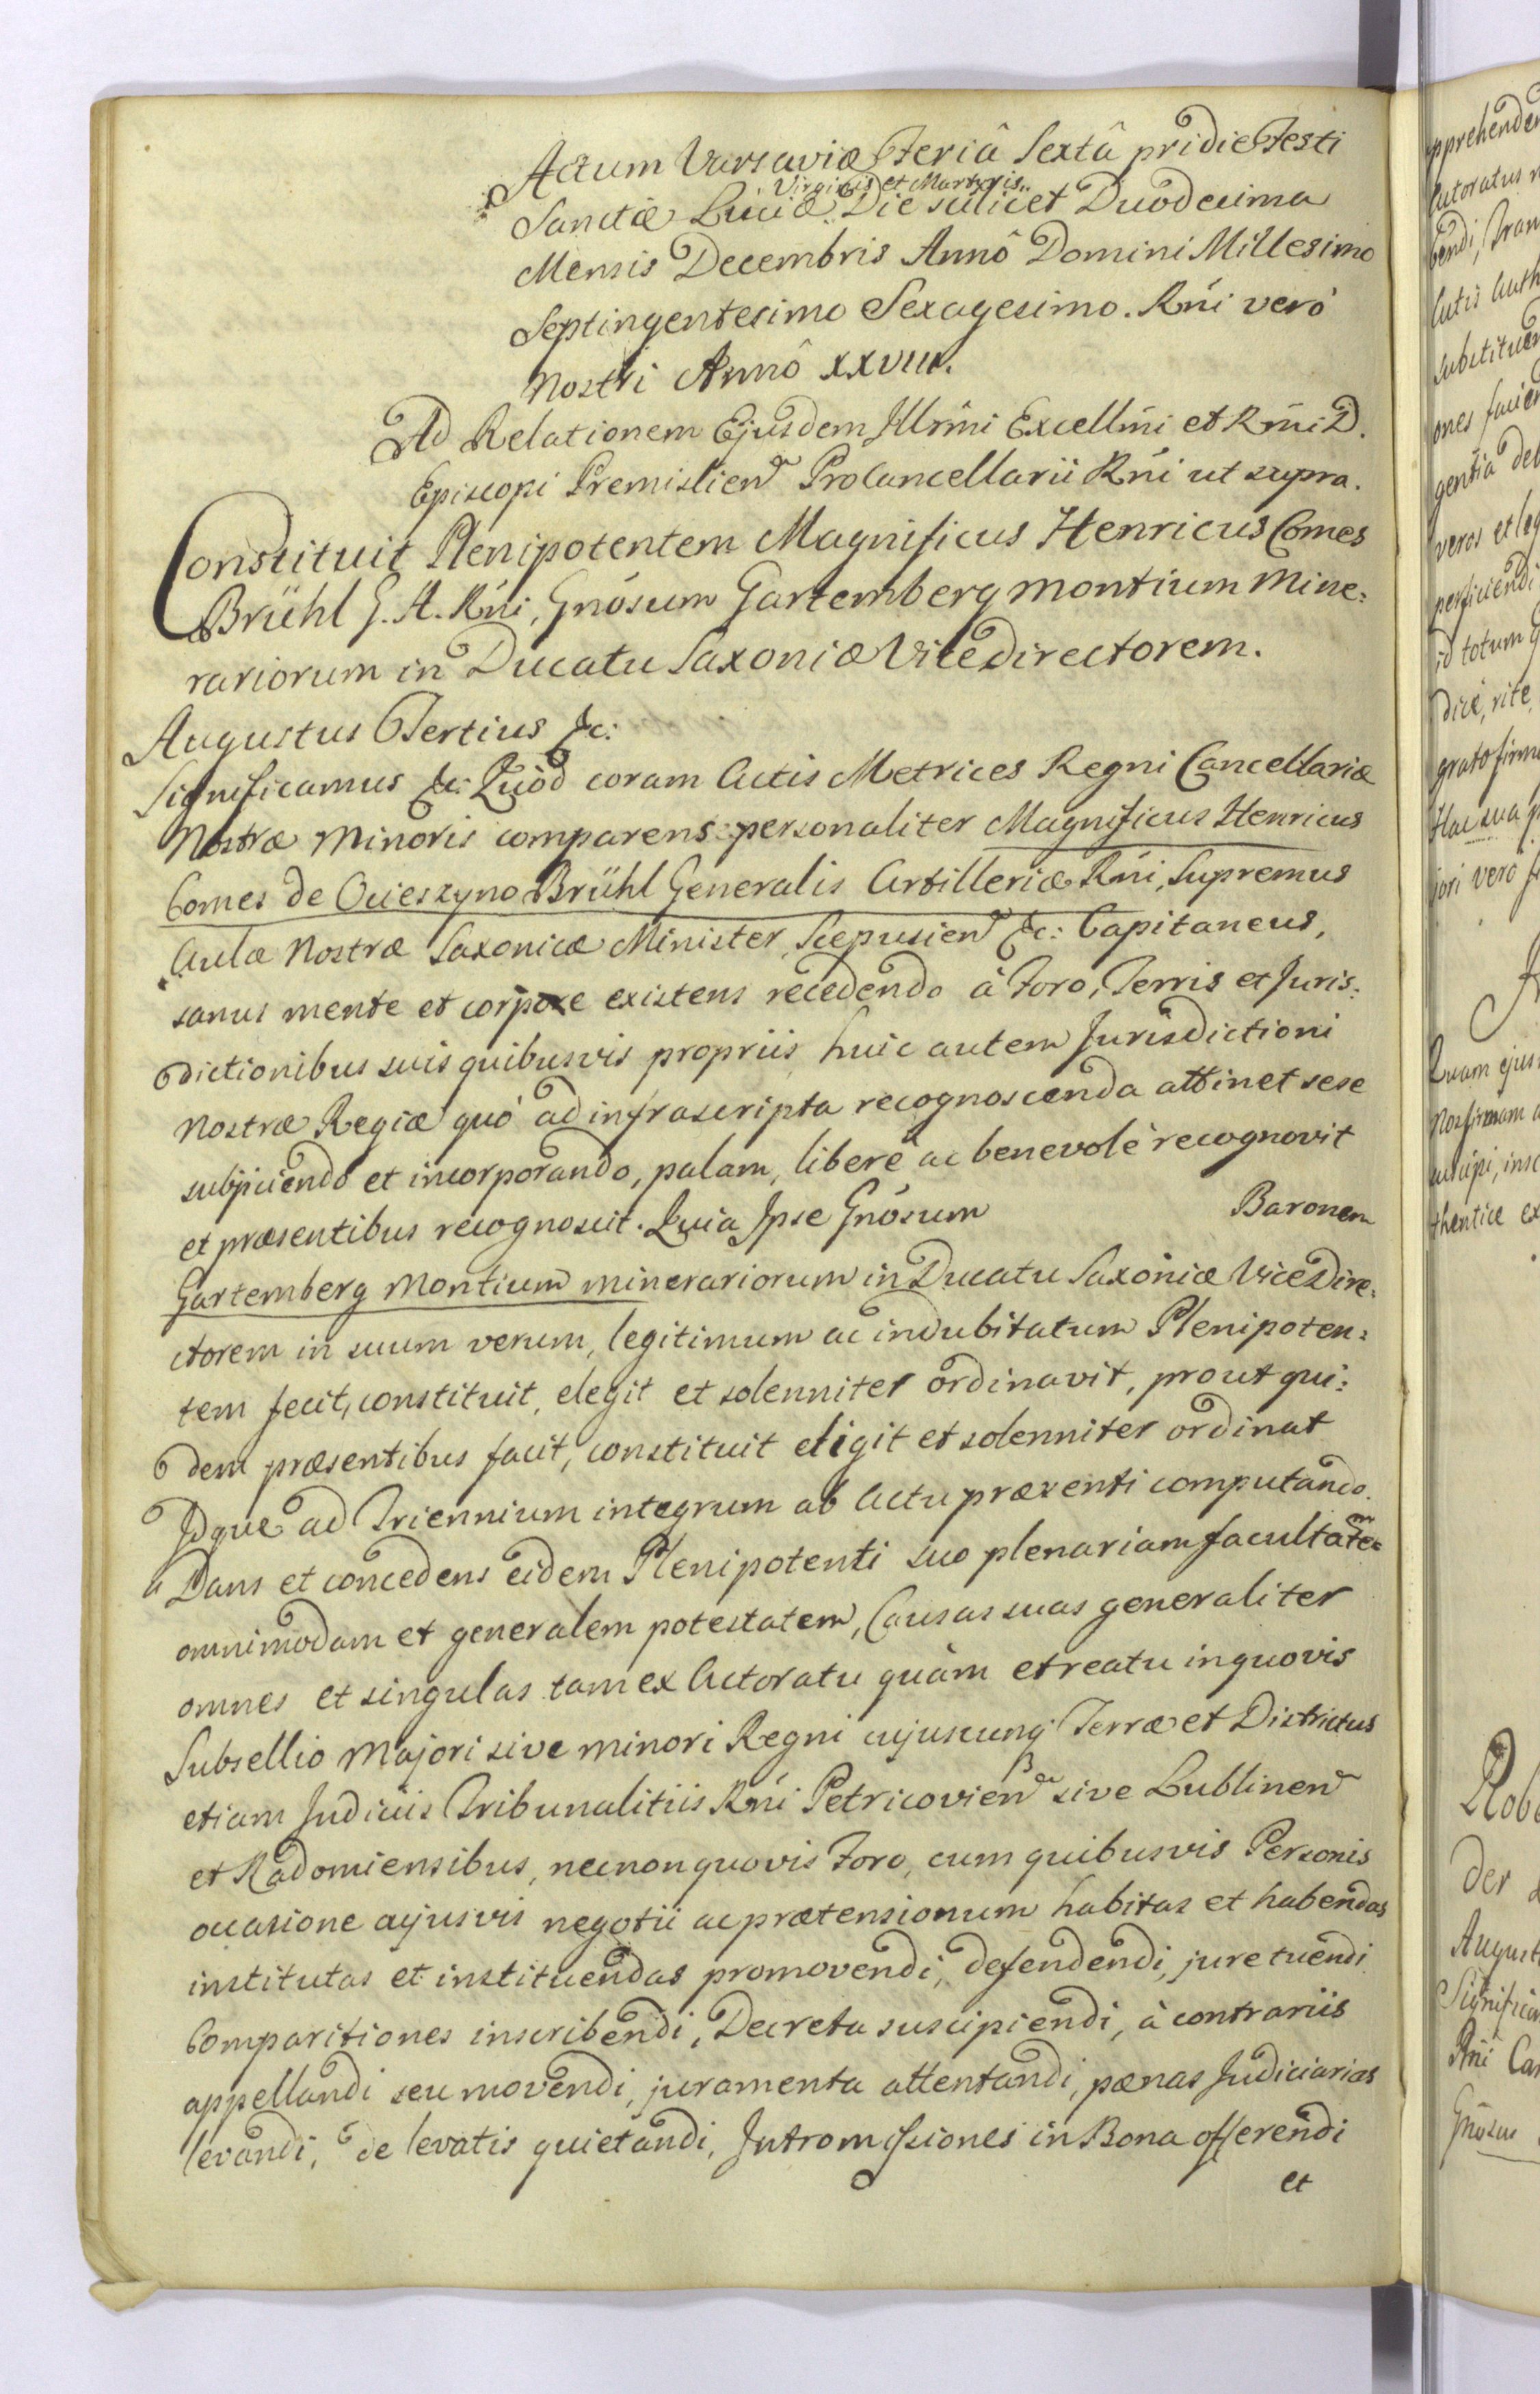 Actum Varsaviæ Feriâ Sextâ pridie Festi
Virginis et Martyris.
Sanctæ Luciæ Die scilicet Duodecima
Mensis Decembris Annô Domini Millesimo
Septingentesimo Sexagesimo. Rńi verò
Nostri Annô XXVIII.
Ad Relationem Ejusdem Illrmi Excellmi et Rmi D.
Episcopi Premislien ProCancellarii Rńi ut supra.
Constituit Plenipotentem Magnificus Henricus Comes
Brühl G. A. Rńi, Gnosum Gartemberg Montium Mine:
rariorum in Ducatu Saxoniæ Vicedirectorem.
Augustus Tertius &c:
Significamus &c: Quod coram Actis Metrices Regni Cancellariæ
Nostræ Minoris comparens personaliter Magnificus Henricus
Comes de Ocieszyno Brühl Generalis Artilleriæ Rńi, Supremus
Aulæ Nostræ Saxonicæ Minister, Scepusien &c: Capitaneus,
sanus mente et corpore existens recedendo à Foro, Terris et Juris:
dictionibus suis quibusvis propriis huic autem Jurisdictioni
Nostræ Regiæ quò ad infrascripta recognoscenda attinet sese
subjiciendo et incorporando, palam, liberè ac benevolè recognovit
et præsentibus recognoscit. Quia Ipse Gnosum Baronem
Gartemberg Montium minerariorum in Ducatu Saxoniæ ViceDire:
ctorem in suum verum, legitimum ac indubitatum Plenipoten:
tem fecit, constituit, elegit et solenniter ordinavit, prout qui:
dem præsentibus facit, constituit eligit et solenniter ordinat
Idque ad Triennium integrum ab Actu præsenti computando.
Dans et concedens eidem Plenipotenti suo plenariam facultatem
omnimodam et generalem potestatem, Causas suas generaliter
omnes et singulas tam ex Actoratu quàm et reatu in quovis
Subsellio Majori sive minori Regni cujuscunq Terræ et Districtus
etiam Judiciis Tribunalitiis Rńi Petricovien sive Lublinen
et Radomiensibus, necnon quovis Foro, cum quibusvis Personis
occasione cujusvis negotii ac prætensionum habitas et habendas
institutas et instituendas promovendi, defendendi, jure tuendi
Comparitiones inscribendi, Decreta suscipiendi, à contrariis
appellandi seu movendi, juramenta attentandi, pænas Judiciarias
levandi, de levatis quietandi, Intromissiones in Bona offerendi
et